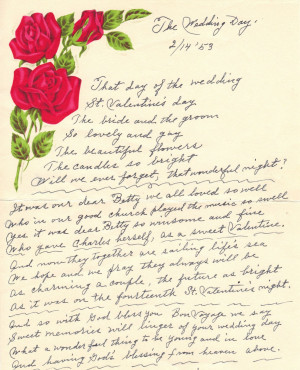 The Wedding Day.
2/14 '53
That day of the wedding
St. Valentine's day
The bride and the groom
So lovely and gay
The beautiful flowers
The candles so bright
Will we ever forget, that wonderful night?
It was our dear Betty we all loved so well
Who in our good church played the music so swell
Yes it was dear Betty so winsome and fine
Who gave Charles herself, as a sweet Valentine.
And now they together are sailing life's sea
We hope and we pray they always will be
as charming a couple, the future as bright
As it was on the fourteenth St. Valentine's night.
And so with God bless you Bon Voyage we say
Sweet memories will linger of your wedding day
What a wonderful thing to be young and in love
And having God's blessing from heaven above.